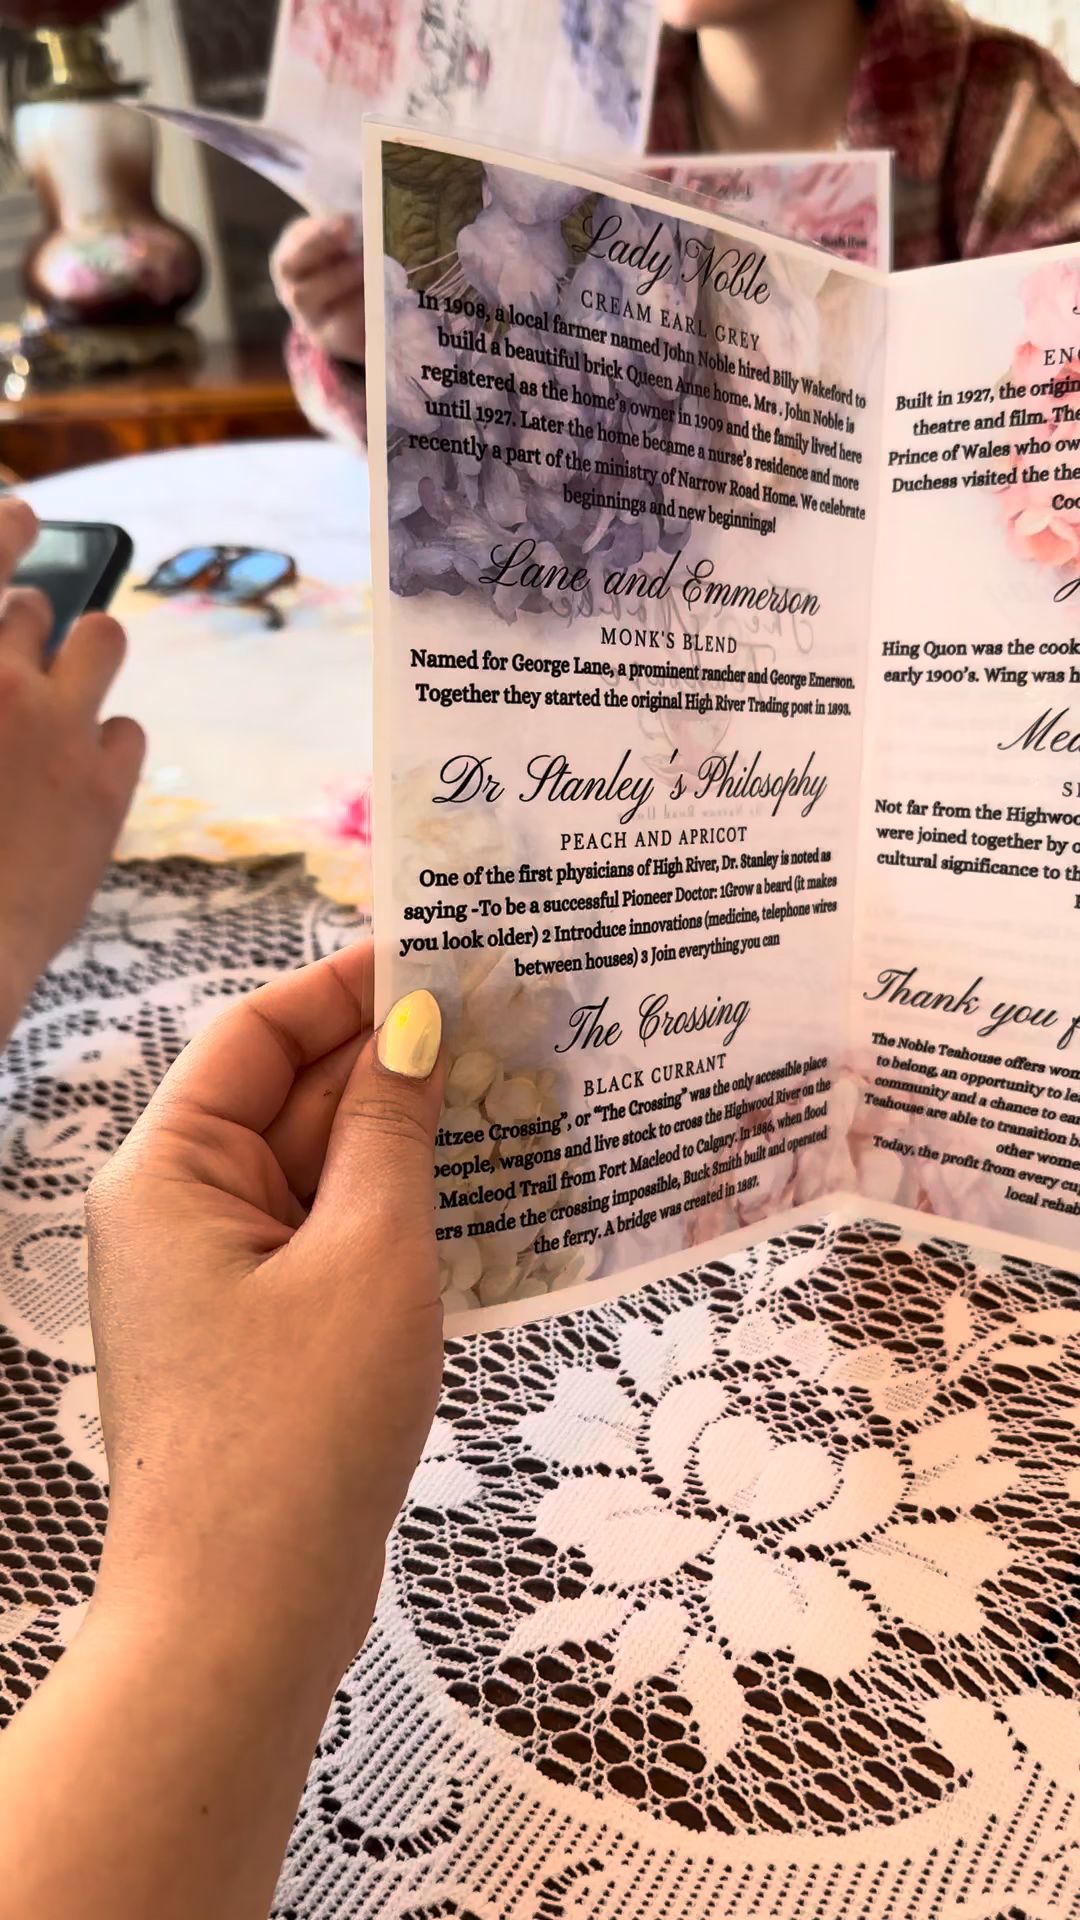 Lady Noble
CREAM EARL GREY
In 1908, a local farmer named John Noble hired Billy Wakeford to
build a beautiful brick Queen Anne home. Mrs. John Noble is
registered as the home's owner in 1909 and the family lived here
until 1927. Later the home became a nurse's residence and more
recently a part of the ministry of Narrow Road Home. We celebrate
beginnings and new beginnings!
Lane and Emmerson
MONK'S BLEND
Named for George Lane, a prominent rancher and George Emerson.
Together they started the original High River Trading post in 1893.
Dr Stanley's Philosophy
PEACH AND APRICOT
One of the first physicians of High River, Dr. Stanley is noted as
saying -To be a successful Pioneer Doctor: 1Grow a beard (it makes
you look older) 2 Introduce innovations (medicine, telephone wires
between houses) 3 Join everything you can
The Crossing
BLACK CURRANT
itzee Crossing", or "The Crossing" was the only accessible place
people, wagons and live stock to cross the Highwood River on the
Macleod Trail from Fort Macleod to Calgary. In 1886, when flood
ers made the crossing impossible, Buck Smith built and operated
the ferry. A bridge was created in 1887.
EN
Built in 1927, the origin
theatre and film. The
Prince of Wales who ow
Duchess visited the the
Coo
Hing Quon was the cook
early 1900's. Wing was h
Med
Not far from the Highwoo
were joined together by o
cultural significance to th
Thank you f
The Noble Teahouse offers wom
to belong, an opportunity to lea
community and a chance to ear
Teahouse are able to transition b
other wome
Today, the profit from every cup
local rehab